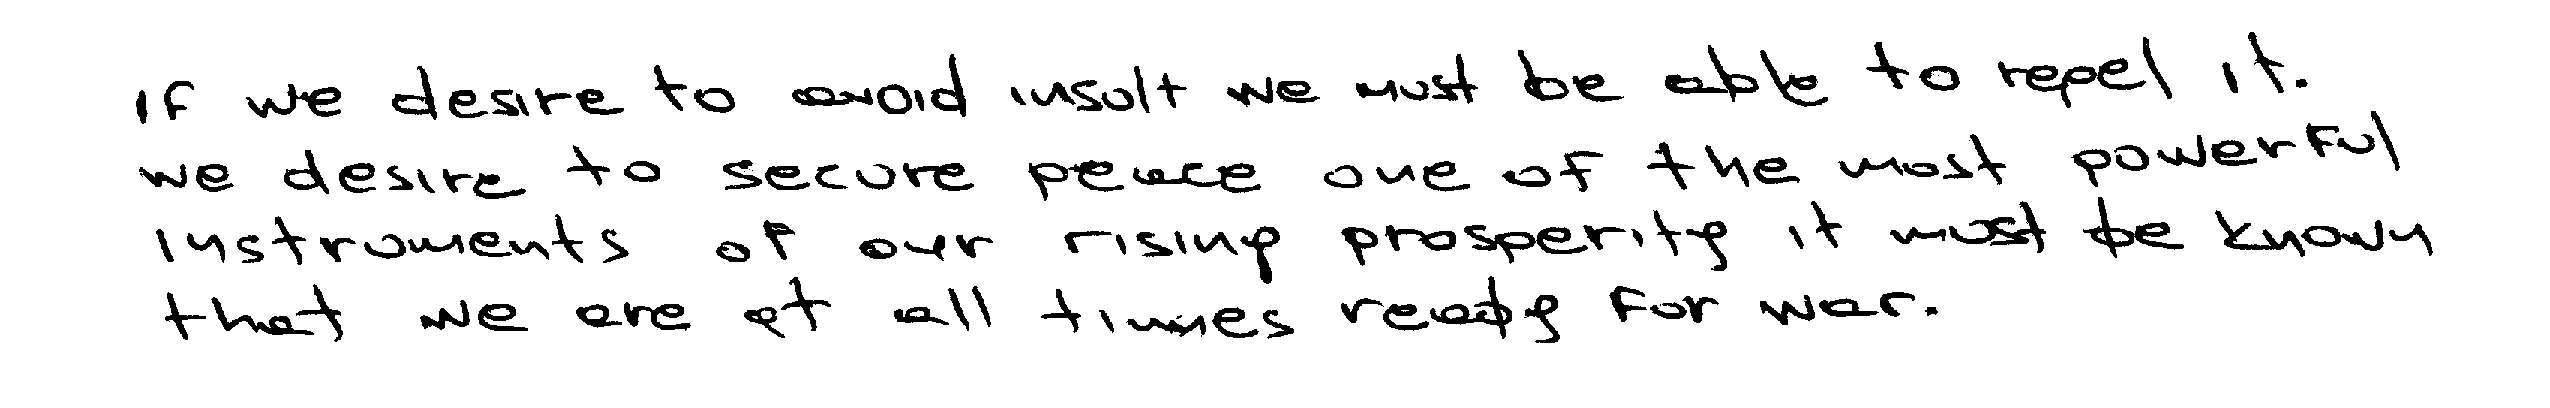 If we desire to avoid insult we must be able to repel it.
we desire to secure peace one of the most powerful
instruments of our rising prosperity it must be known
that we are at all times ready for war.